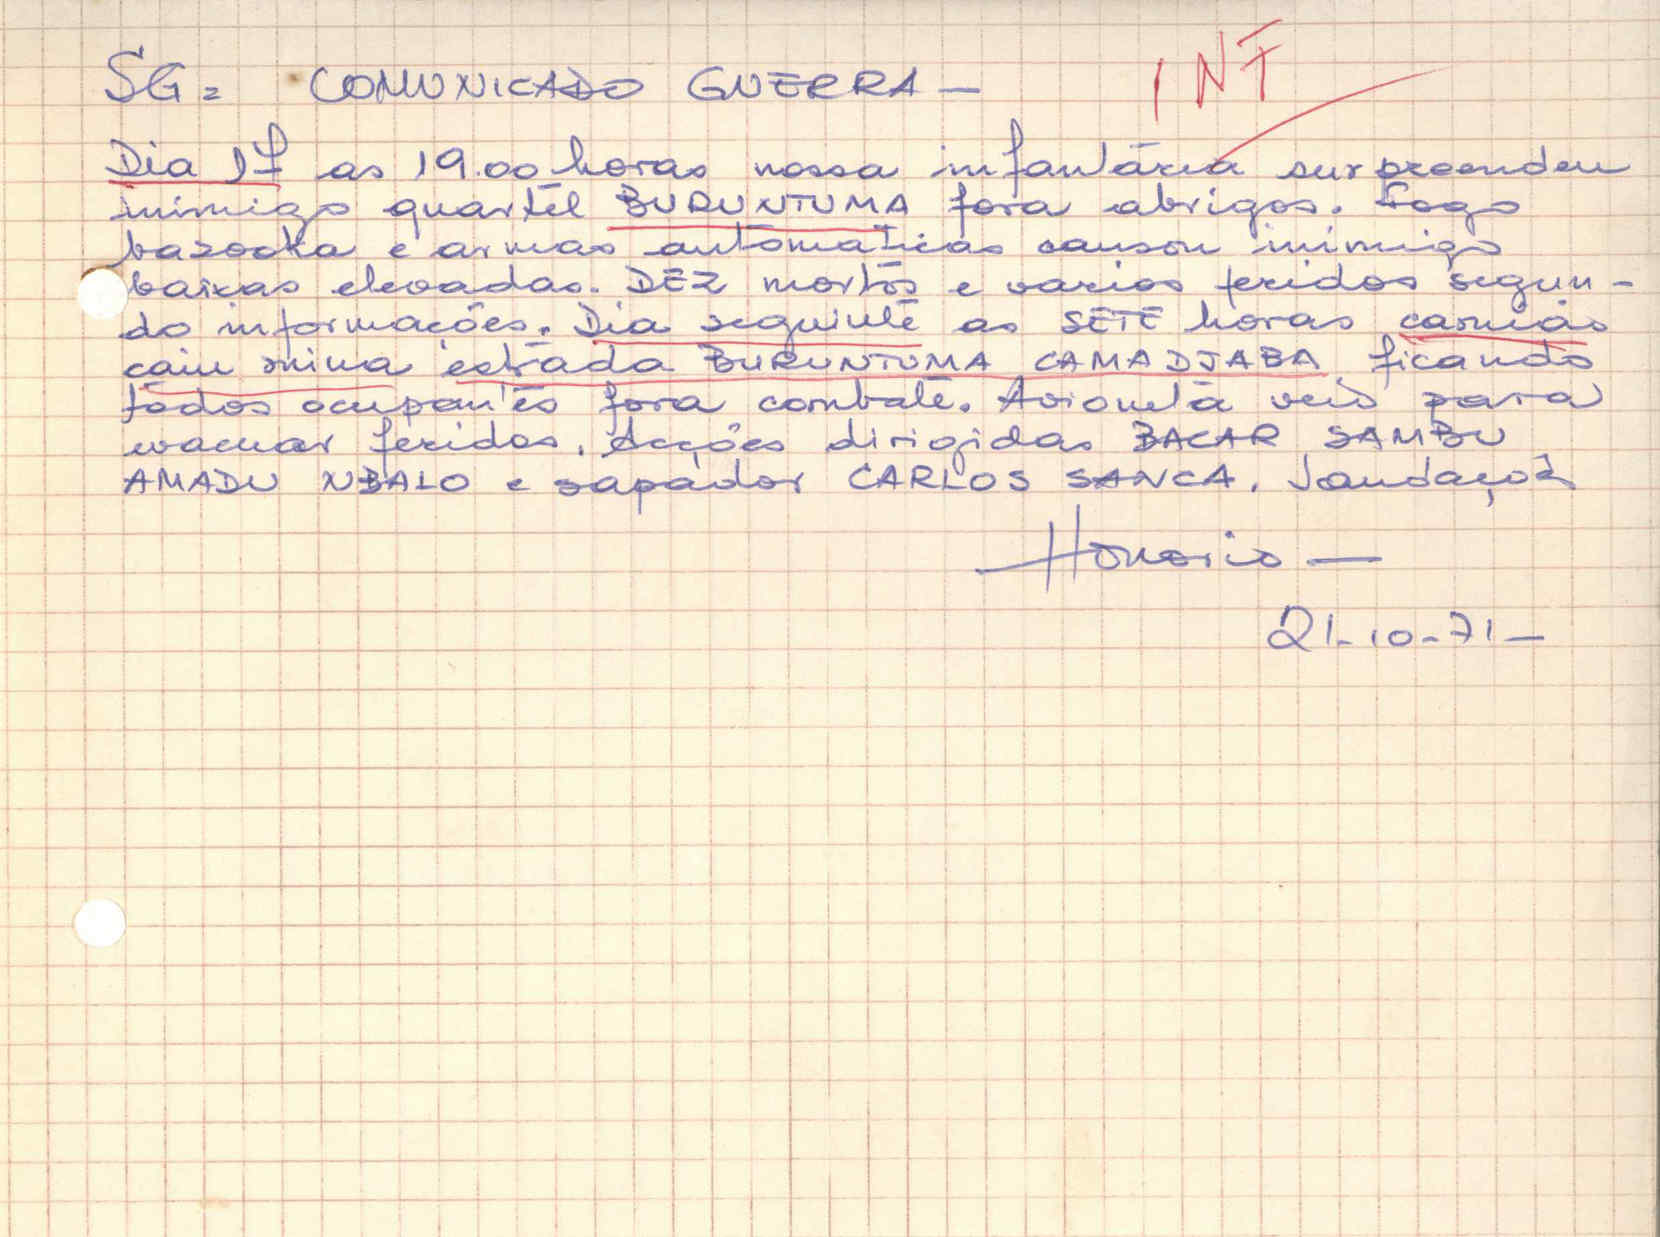 INT
SG = COMUNICADO GUERRA -
Dia 17 as 19.00 horas nossa infantaria surpreendeu
inimigo quartel BURUNTUMA fora abrigos. Fogo
bazooka e armas automaticas causou inimigo
baixas elevadas. DEZ mortos e varios feridos segun-
do informações. Dia seguinte as SETE horas camião
caiu mina estrada BURUNTUMA CAMADJABA ficando
todos ocupantes fora combate. Avioneta veio para
evacuar feridos. Acções dirigidas BACAR SAMBU
AMADU NBALO e sapador CARLOS SANCA. Saudaçoẽs
Honorio -
21-10-71-